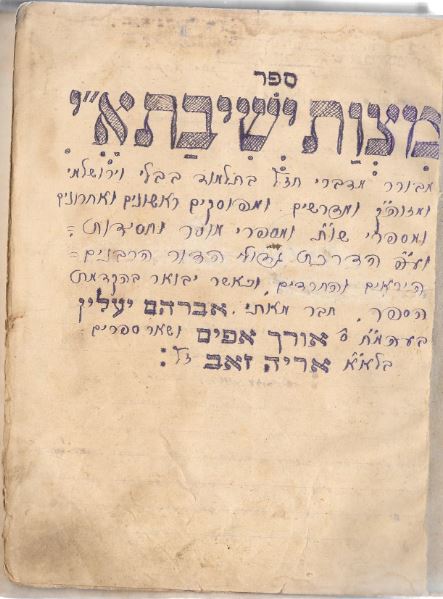 ספר
מצות ישיבת א״י
מבורר מדברי חז״ל בתלמוד בבלי וירושלמי
ומזוה״ק ומדרשים. ומפוסקים ראשונים ואחרונים
ומספרי שו״ת. ומספרי מוסר וחסידות
ועפ״י הדרכת גדולי הדור הרבנים
היראים והחרדים, וכאשר יבואר בהקדמת
הספר. חבר מאתי. אברהם יעלין
בעהמ״ח ס׳ אורך אפים ושאר ספרים
בלא״א אריה זאב ז״ל: